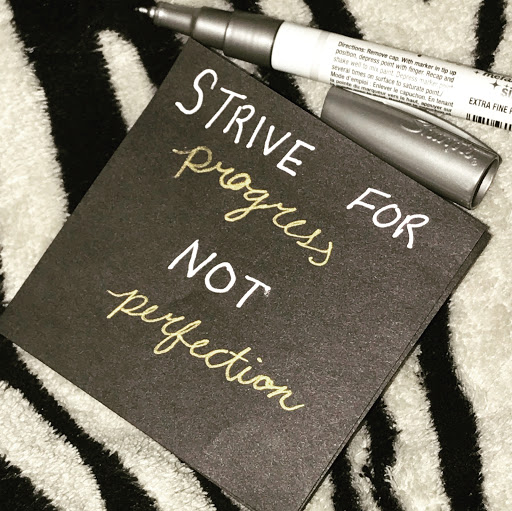 STRIVE FOR
progress
NOT
perfection
Directions: Remove cap. With marker in tip up
position, depress point with finger. Recap and
several times on surface to saturate point.
Mode d'emploi: Enlever le capuchon. En tenant
EXTRA FINE